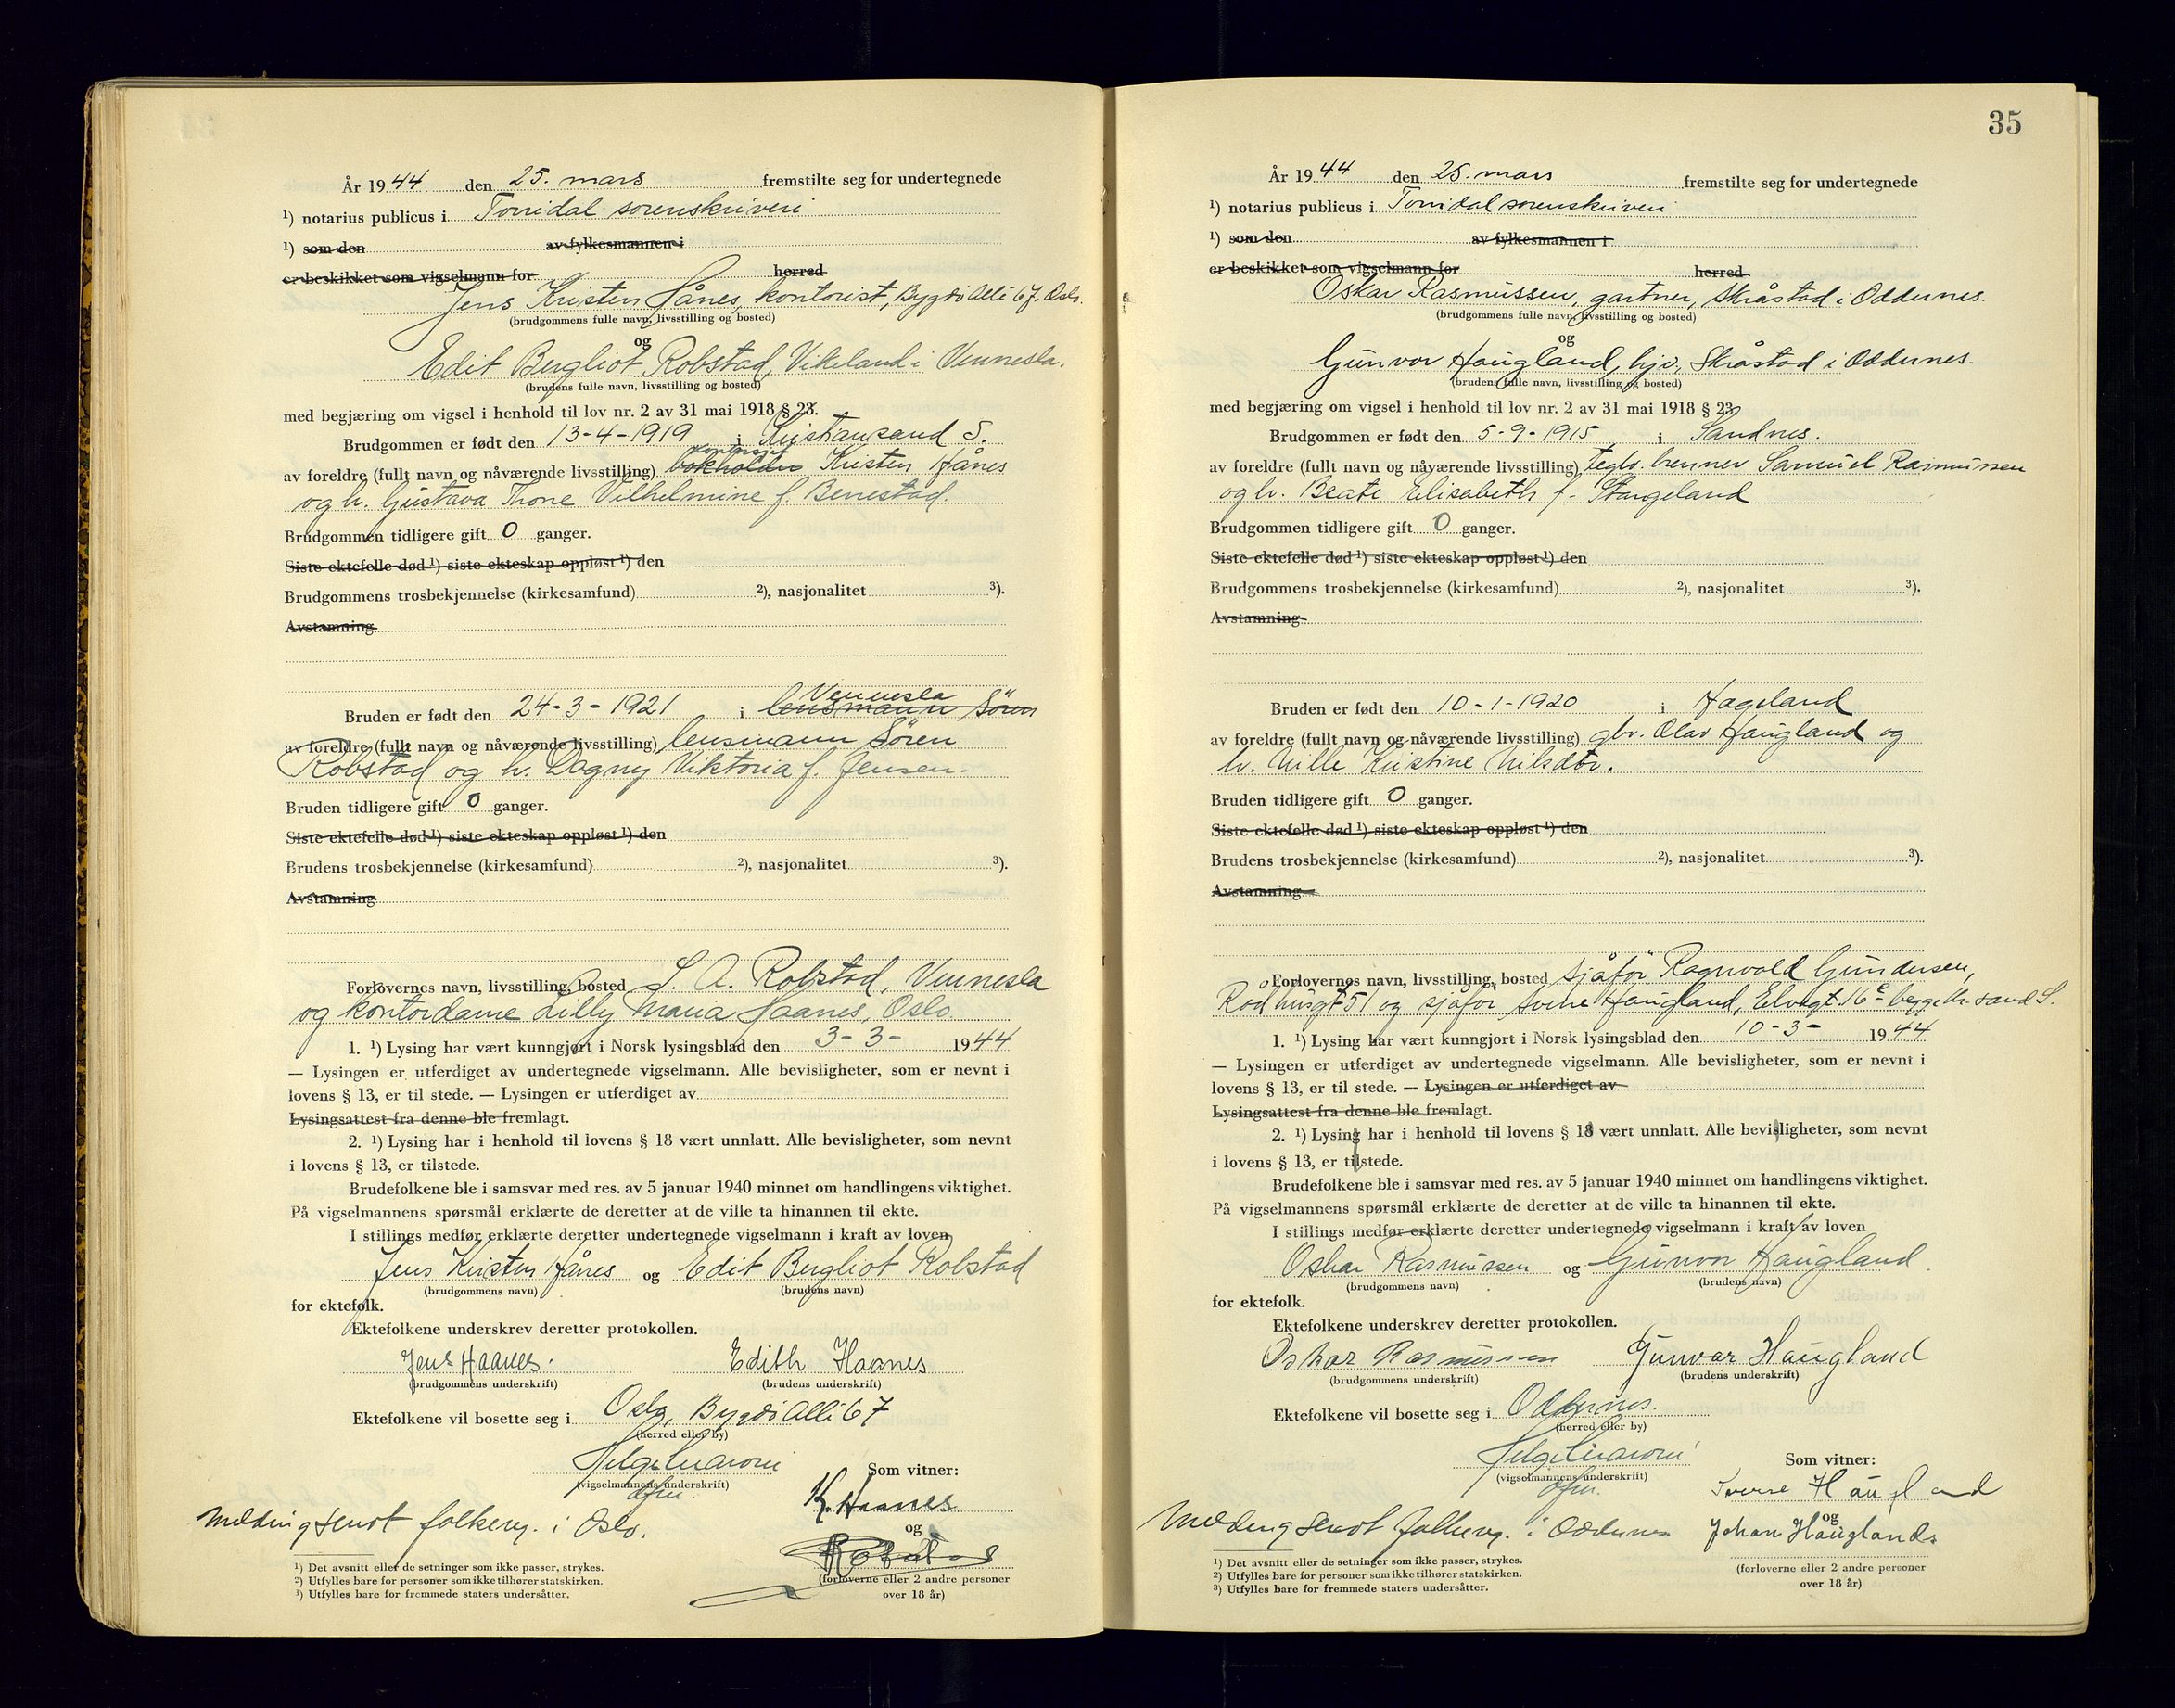 År 1944 den 25. mars fremstilte seg for undertegnede
¹) notarius publicus i Torridal sorenskriveri
¹) som den av fylkesmannen i
er beskikket som vigselmann for herred
Jens Kristen Hånes, kontorist, Bygdö Allé 67, Oslo.
(brudgommens fulle navn, livsstilling og bosted)
og
Edit Bergliot Robstad, Vikeland i Vennesla.
(brudens fulle navn, livsstilling og bosted)
med begjæring om vigsel i henhold til lov nr. 2 av 31 mai 1918 § 23.
Brudgommen er født den 13-4-1919 i Kristiansand S.
kontorsjef
av foreldre (fullt navn og nåværende livsstilling) bokholder Kristen Hånes
og h. Gustava Thone Vilhelmine f. Benestad.
Brudgommen tidligere gift 0 ganger.
Siste ektefelle død ¹) siste ekteskap oppløst ¹) den
Brudgommens trosbekjennelse (kirkesamfund) ²), nasjonalitet ³).
Avstamning
Vennesla
Bruden er født den 24-3-1921 i lensmann Sören
av foreldre (fullt navn og nåværende livsstilling) lensmann Sören
Robstad og h. Dagny Viktoria f. Jensen.
Bruden tidligere gift 0 ganger.
Siste ektefelle død ¹) siste ekteskap oppløst ¹) den
Brudens trosbekjennelse (kirkesamfund) ²), nasjonalitet ³).
Avstamning
Forlovernes navn, livsstilling, bosted S. A. Robstad, Vennesla
og kontordame Lilly Maria Haanes, Oslo.
1. ¹) Lysing har vært kunngjort i Norsk lysingsblad den 3-3- 1944
— Lysingen er utferdiget av undertegnede vigselmann. Alle bevisligheter, som er nevnt i
lovens § 13, er til stede. — Lysingen er utferdiget av
Lysingsattest fra denne ble fremlagt.
2. ¹) Lysing har i henhold til lovens § 18 vært unnlatt. Alle bevisligheter, som nevnt
i lovens § 13, er tilstede.
Brudefolkene ble i samsvar med res. av 5 januar 1940 minnet om handlingens viktighet.
På vigselmannens spørsmål erklærte de deretter at de ville ta hinannen til ekte.
I stillings medfør erklærte deretter undertegnede vigselmann i kraft av loven
Jens Kristen Hånes og Edit Bergliot Robstad
(brudgommens navn) (brudens navn)
for ektefolk.
Ektefolkene underskrev deretter protokollen.
Jens Haanes. Edith Haanes
(brudgommens underskrift) (brudens underskrift)
Ektefolkene vil bosette seg i Oslo, Bygdö Allé 67
(herred eller by)
Som vitner:
(vigselmannens underskrift)
K. Haanes
og
Melding sendt folkereg. i Oslo.
Robstad
(forloverne eller 2 andre personer
over 18 år)
¹) Det avsnitt eller de setninger som ikke passer, strykes.
²) Utfylles bare for personer som ikke tilhører statskirken.
³) Utfylles bare for fremmede staters undersåtter.
35
År 1944 den 25. mars fremstilte seg for undertegnede
¹) notarius publicus i Torridal sorenskriveri
¹) som den av fylkesmannen i
er beskikket som vigselmann for herred
Oskar Rasmussen, gartner, Skråstad i Oddernes.
(brudgommens fulle navn, livsstilling og bosted)
og
Gunvor Haugland, hjv., Skråstad i Oddernes.
(brudens fulle navn, livsstilling og bosted)
med begjæring om vigsel i henhold til lov nr. 2 av 31 mai 1918 § 23
Brudgommen er født den 5-9-1915 i Sandnes.
av foreldre (fullt navn og nåværende livsstilling) teglv. brenner Samuel Rasmussen
og h. Beate Elisabeth f. Stangeland
Brudgommen tidligere gift 0 ganger.
Siste ektefelle død ¹) siste ekteskap oppløst ¹) den
Brudgommens trosbekjennelse (kirkesamfund) ²), nasjonalitet ³).
Avstamning
Bruden er født den 10-1-1920 i Hægeland
av foreldre (fullt navn og nåværende livsstilling) gbr. Olav Haugland og
h. Nille Kristine Nilsdtr.
Bruden tidligere gift 0 ganger.
Siste ektefelle død ¹) siste ekteskap oppløst ¹) den
Brudens trosbekjennelse (kirkesamfund) ²), nasjonalitet ³).
Avstamning
Forlovernes navn, livsstilling, bosted sjåför Ragnvald Gundersen,
Rådhusgt 51 og sjåför Sverre Haugland, Elvegt. 16 c - begge Kr.sand S.
1. ¹) Lysing har vært kunngjort i Norsk lysingsblad den 10-3- 1944
— Lysingen er utferdiget av undertegnede vigselmann. Alle bevisligheter, som er nevnt i
lovens § 13, er til stede. — Lysingen er utferdiget av
Lysingsattest fra denne ble fremlagt.
2. ¹) Lysing har i henhold til lovens § 18 vært unnlatt. Alle bevisligheter, som nevnt
i lovens § 13, er tilstede.
Brudefolkene ble i samsvar med res. av 5 januar 1940 minnet om handlingens viktighet.
På vigselmannens spørsmål erklærte de deretter at de ville ta hinannen til ekte.
I stillings medfør erklærte deretter undertegnede vigselmann i kraft av loven
Oskar Rasmussen og Gunvor Haugland
(brudgommens navn) (brudens navn)
for ektefolk.
Ektefolkene underskrev deretter protokollen.
Oskar Rasmussen Gunvor Haugland
(brudgommens underskrift) (brudens underskrift)
Ektefolkene vil bosette seg i Oddernes.
(herred eller by)
Som vitner:
(vigselmannens underskrift)
Sverre Haugland
og
Melding sendt folkereg. i Oddernes
Johan Hauglands
(forloverne eller 2 andre personer
over 18 år)
¹) Det avsnitt eller de setninger som ikke passer, strykes.
²) Utfylles bare for personer som ikke tilhører statskirken.
³) Utfylles bare for fremmede staters undersåtter.